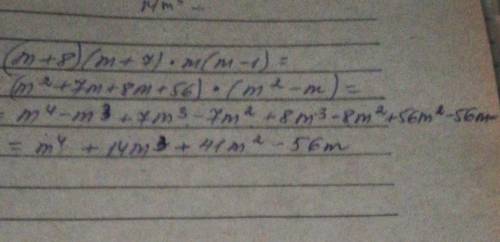 (m+8)(m+7)·m(m-1)=
(m²+7m+8m+56)·(m²-m)=
= m⁴-m³+7m³-7m²+8m³-8m²+56m²-56m
= m⁴+14m³+41m²-56m